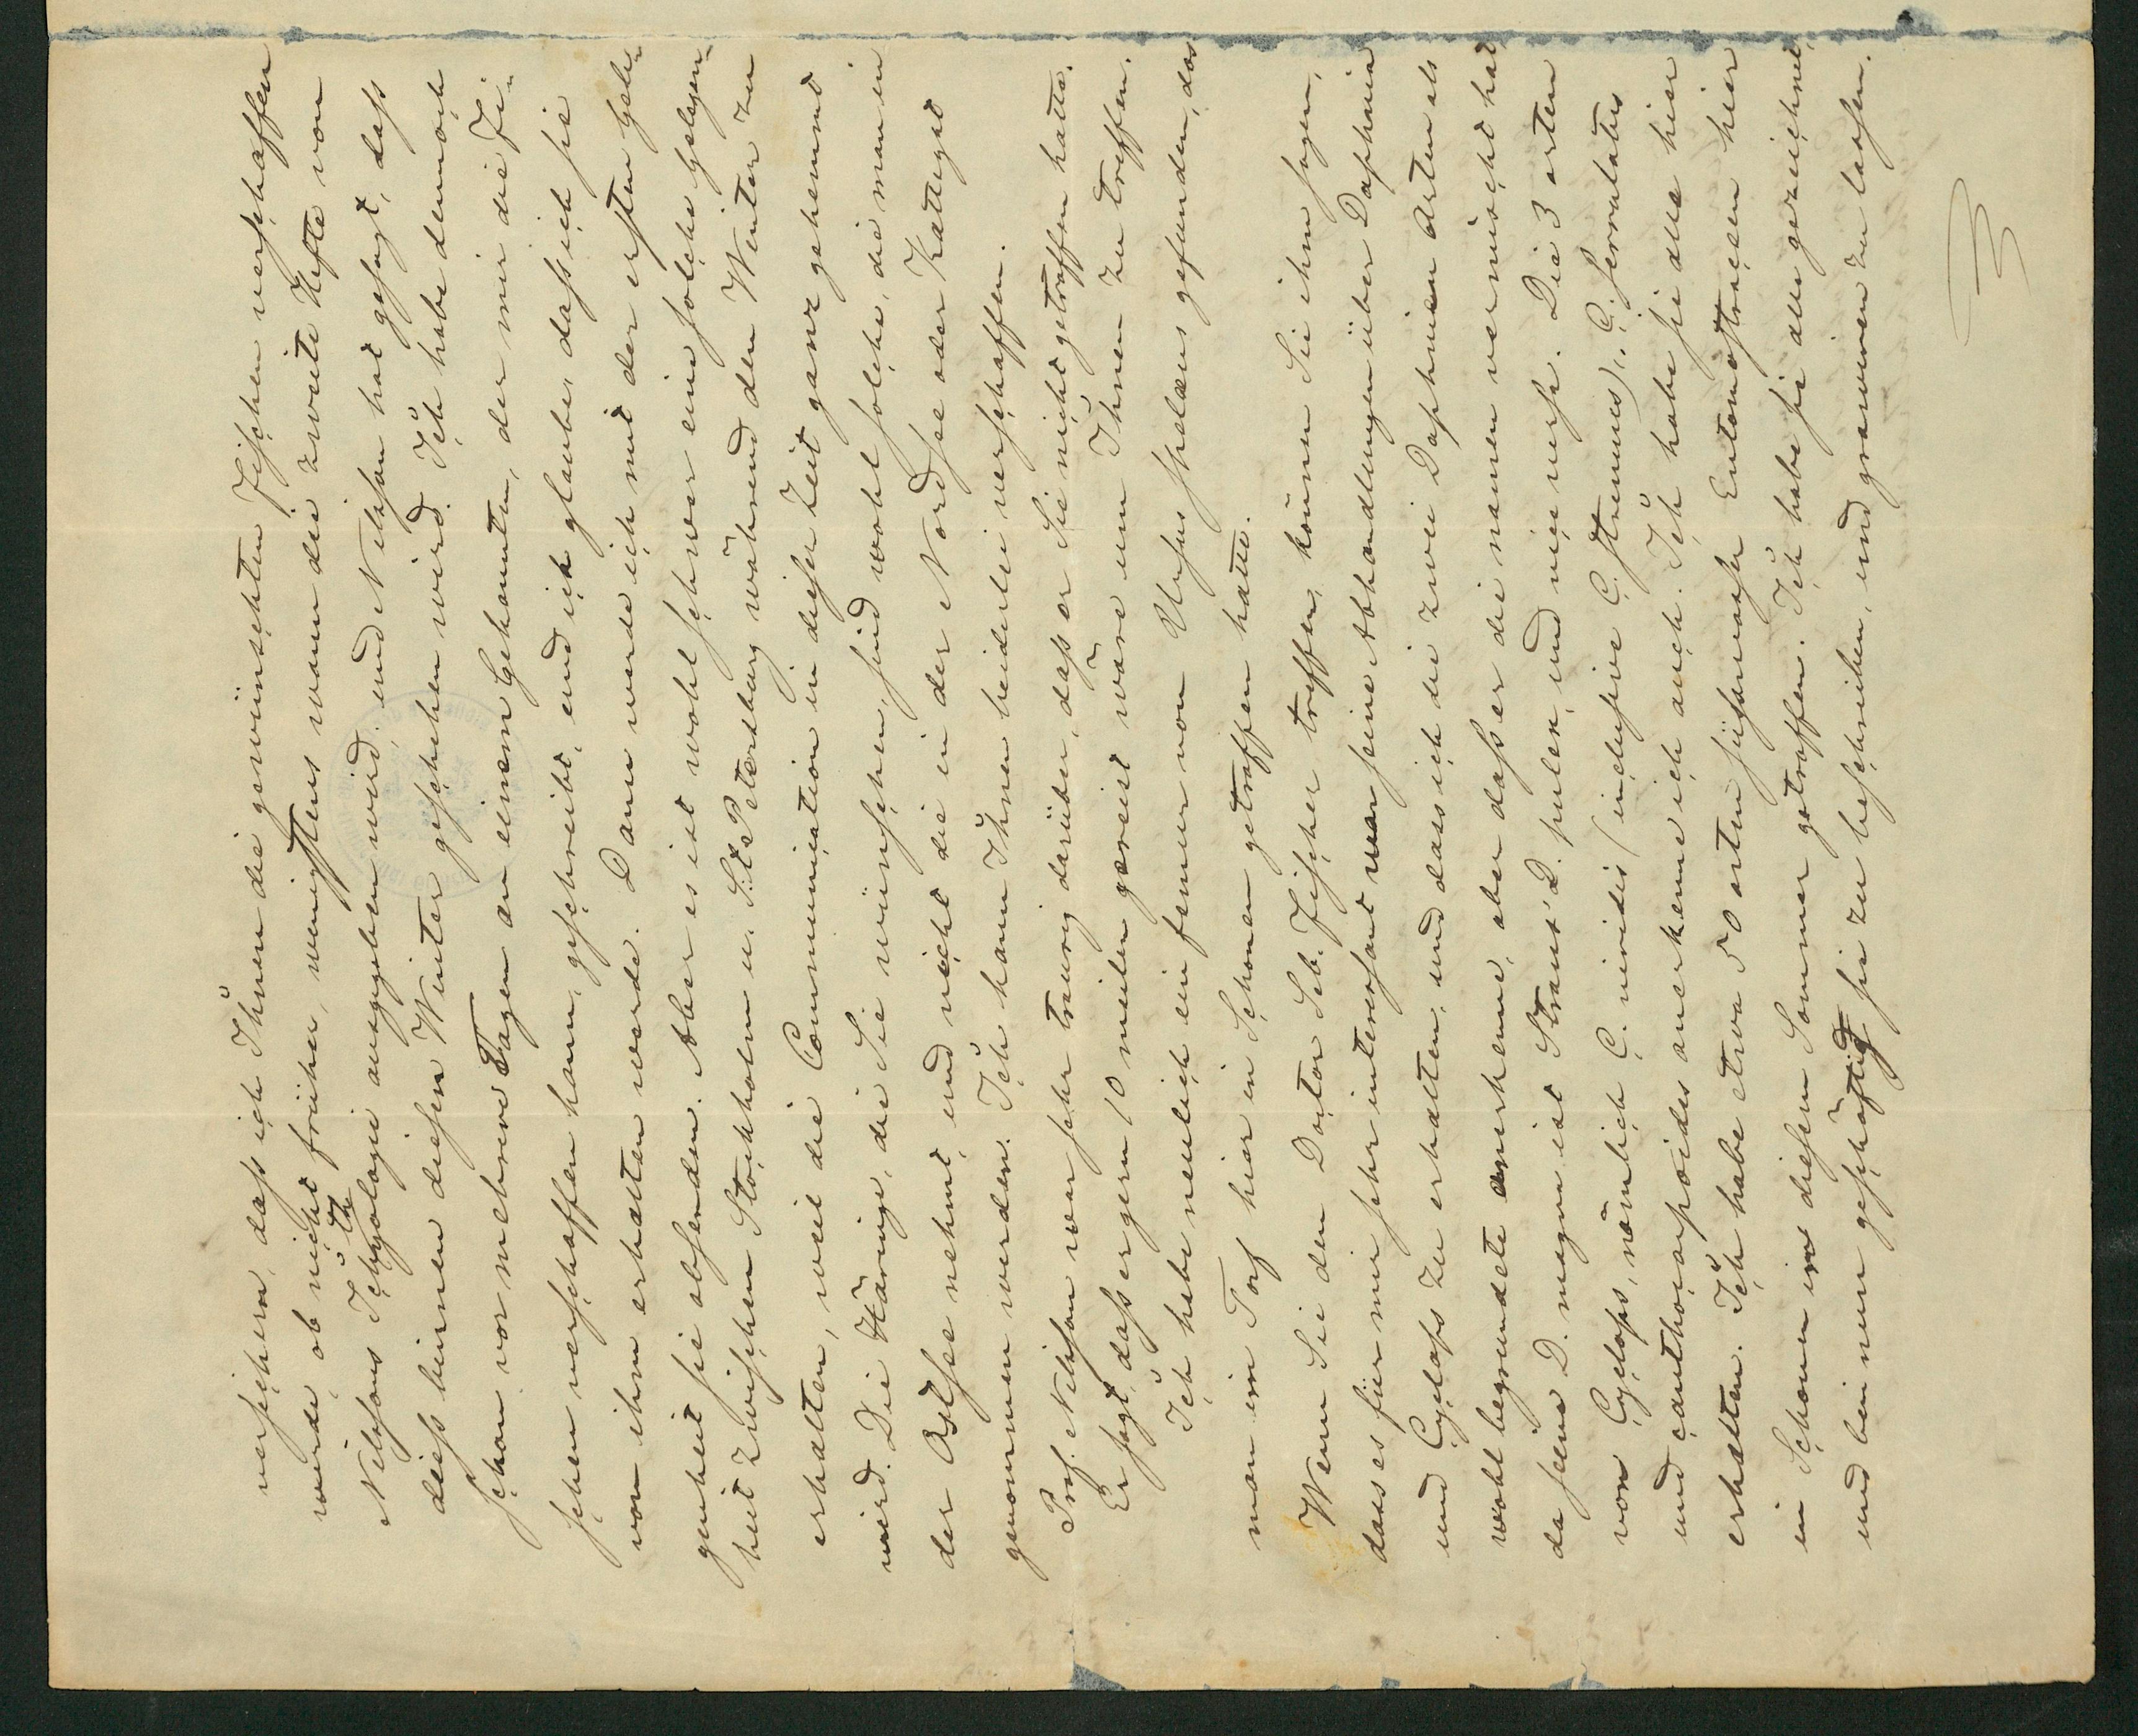 versichern, dass ich Ihnen die gewünschten Fischen verschaffen
werde, ob nicht früher, wenigstens wann die zweite Hefte von
Nilssons Ichtyologie ausgegeben wird; und Nilsson hat gesagt, dass
diess binnen diesen Winter geschehen wird. Ich habe dennoch
schon vor mehrere Tagen an einem Bekannten, der mir die Fi-
schen verschaffen kann, geschreibt, und ich glaube, dass ich sie
von ihm erhalten werde. Dann werde ich mit der ersten Gele-
genheit sie absenden. Aber es ist wohl schwer eine solche Gelegen-
heit zwischen Stockholm u. S:t Petersburg während den Winter zu
erhalten, weil die Communication in dieser Zeit ganz gehemmt
wird. Die Häringe, die Sie wünschen, sind wohl solche, die man in
der Ostsee nehmt, und nicht die in der Nordsee oder Kattegat
genommen werden. Ich kann Ihnen beiderlei verschaffen.
Prof. Nilsson war sehr traurig darüber, dass er Sie nicht getroffen hatte.
Er sagt, dass er gern 10 meilen gereist wäre um Ihnen zu treffen.
Ich habe neulich ein femur von Ursus spelæus gefunden, das
man im Torf hier in Schonen getroffen hatte.
Wenn Sie den Doctor Seb. Fischer treffen, können Sie ihm sagen,
dass es für mir sehr interessant war seine Abhandlungen über Daphnia
und Cyclops zu erhalten, und dass ich die zwei Daphnien Arten als
wohl begrundete anerkenne, aber dass er die namen vermischt hat
da seine D. magna ist Straus' D. pulex, und vice versa. Die 3 arten
von Cyclops, nämlich C. viridis (inclusive C. strenuus), C. serrulatus
und canthocarpoides anerkenne ich auch. Ich habe sie alle hier
erhalten. Ich habe etwa 50 arten süsswasser Entomostraceen hier
in Schonen in diesem Sommer getroffen. Ich habe sie alle gezeichnet,
und bin nun geschäftig sie zu beschreiben, und gravieren zu lassen.